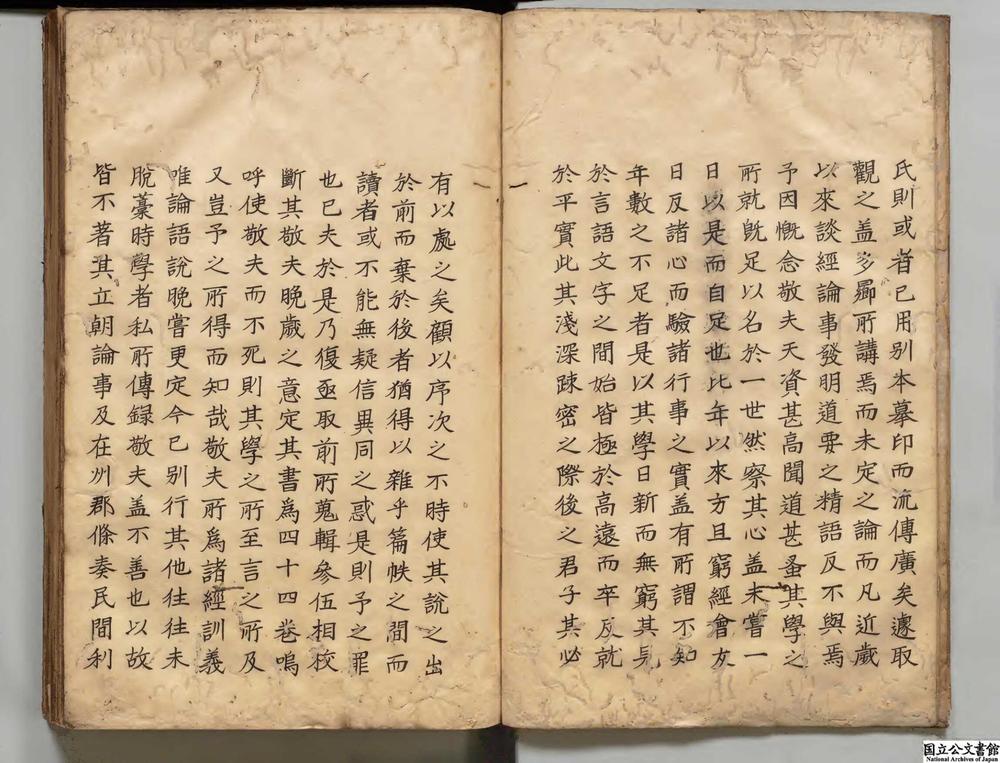 氏則或者已用别本摹印而流傳廣矣遽取
觀之盖多曏所講焉而未定之論而凡近歲
以來談經論事發明道要之精語反不與焉
予因慨念敬夫天資甚高聞道甚蚤其學之
所就旣足以名於一世然察其心盖未嘗一
日以是而自足也比年以來方且窮經會友
日反諸心而驗諸行事之實盖有所謂不知
年數之不足者是以其學日新而無窮其見
於言語文字之間始皆極於高遠而卒反就
於平實此其淺深踈密之際後之君子其必
有以處之矣顧以序次之不時使其説之出
於前而棄於後者猶得以雜乎篇帙之間而
讀者或不能無疑信異同之惑是則予之罪
也已夫於是乃復亟取前所蒐輯參伍相校
斷其敬夫晚歲之意定其書爲四十四卷嗚
呼使敬夫而不死則其學之所至言之所及
又豈予之所得而知哉敬夫所爲諸經訓義
唯論語説晚嘗更定今已别行其他往往未
脫藁時學者私所傳録敬夫盖不善也以故
皆不著其立朝論事及在州郡條奏民間利
国立公文書館
National Archives of Japan